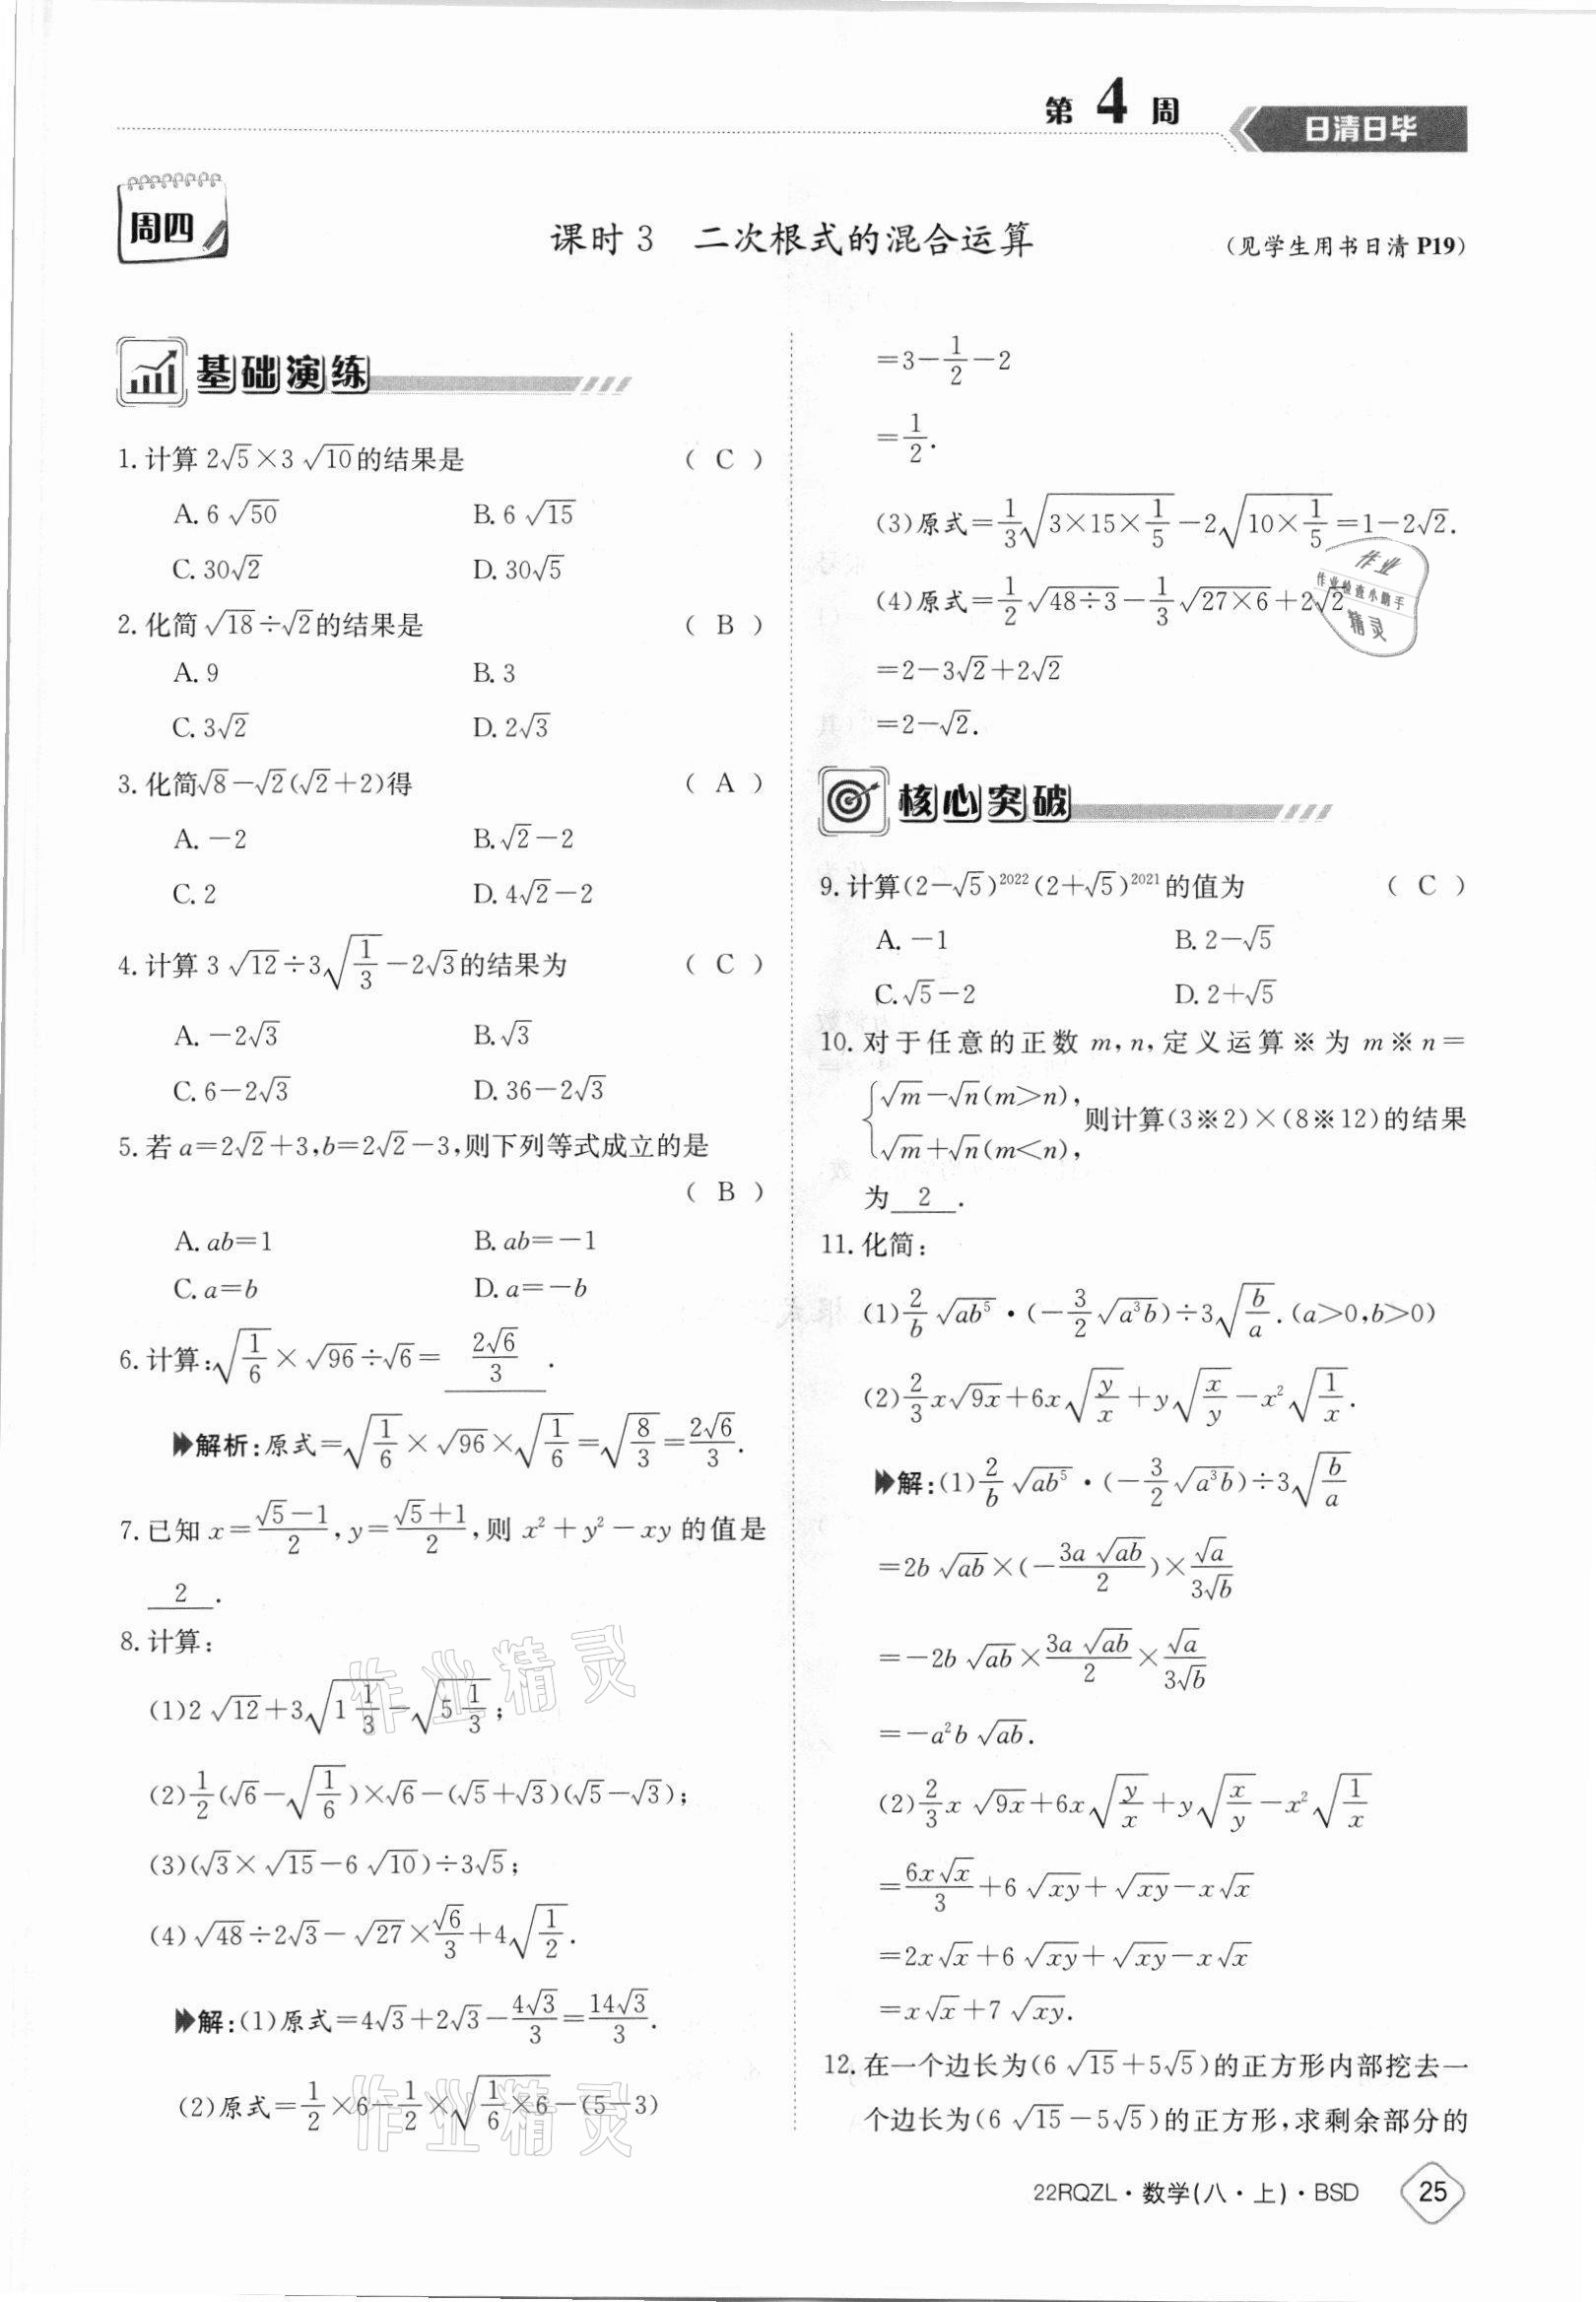 第 4 周
日清日毕
周四
课时 3 二次根式的混合运算
(见学生用书日清 P19)
基础演练
1. 计算 2√5×3√10的结果是 ( C )
A. 6√50 B. 6√15
C. 30√2 D. 30√5
2. 化简√18÷√2的结果是 ( B )
A. 9 B. 3
C. 3√2 D. 2√3
3. 化简√8-√2(√2+2)得 ( A )
A. -2 B. √2-2
C. 2 D. 4√2-2
4. 计算 3√12÷3√(1/3)-2√3的结果为 ( C )
A. -2√3 B. √3
C. 6-2√3 D. 36-2√3
5. 若 a=2√2+3,b=2√2-3,则下列等式成立的是
( B )
A. ab=1 B. ab=-1
C. a=b D. a=-b
6. 计算:√(1/6)×√96÷√6= 2√6/3 .
解析:原式=√(1/6)×√96×√(1/6)=√(8/3)=2√6/3.
7. 已知 x=(√5-1)/2,y=(√5+1)/2,则 x²+y²-xy 的值是
2 .
8. 计算:
(1)2√12+3√(1 1/3)-√(5 1/3);
(2)1/2(√6-√(1/6))×√6-(√5+√3)(√5-√3);
(3)(√3×√15-6√10)÷3√5;
(4)√48÷2√3-√27×√6/3+4√(1/2).
解:(1)原式=4√3+2√3-4√3/3=14√3/3.
(2)原式=1/2×6-1/2×√(1/6×6)-(5-3)
=3-1/2-2
=1/2.
(3)原式=1/3√(3×15×1/5)-2√(10×1/5)=1-2√2.
(4)原式=1/2√(48÷3)-1/3√(27×6)+2√2
=2-3√2+2√2
=2-√2.
作业
作业检查小助手
精灵
核心突破
9. 计算(2-√5)²⁰²²(2+√5)²⁰²¹的值为 ( C )
A. -1 B. 2-√5
C. √5-2 D. 2+√5
10. 对于任意的正数 m,n,定义运算※为 m※n=
{√m-√n(m>n),
√m+√n(m<n), 则计算(3※2)×(8※12)的结果
为 2 .
11. 化简:
(1)2/b√(ab⁵)·(-3/2√(a³b))÷3√(b/a).(a>0,b>0)
(2)2/3x√(9x)+6x√(y/x)+y√(x/y)-x²√(1/x).
解:(1)2/b√(ab⁵)·(-3/2√(a³b))÷3√(b/a)
=2b√(ab)×(-3a√(ab)/2)×√a/3√b
=-2b√(ab)×3a√(ab)/2×√a/3√b
=-a²b√(ab).
(2)2/3x√(9x)+6x√(y/x)+y√(x/y)-x²√(1/x)
=6x√x/3+6√(xy)+√(xy)-x√x
=2x√x+6√(xy)+√(xy)-x√x
=x√x+7√(xy).
12. 在一个边长为(6√15+5√5)的正方形内部挖去一
个边长为(6√15-5√5)的正方形,求剩余部分的
作业精灵
作业精灵
22RQZL·数学(八·上)·BSD 25